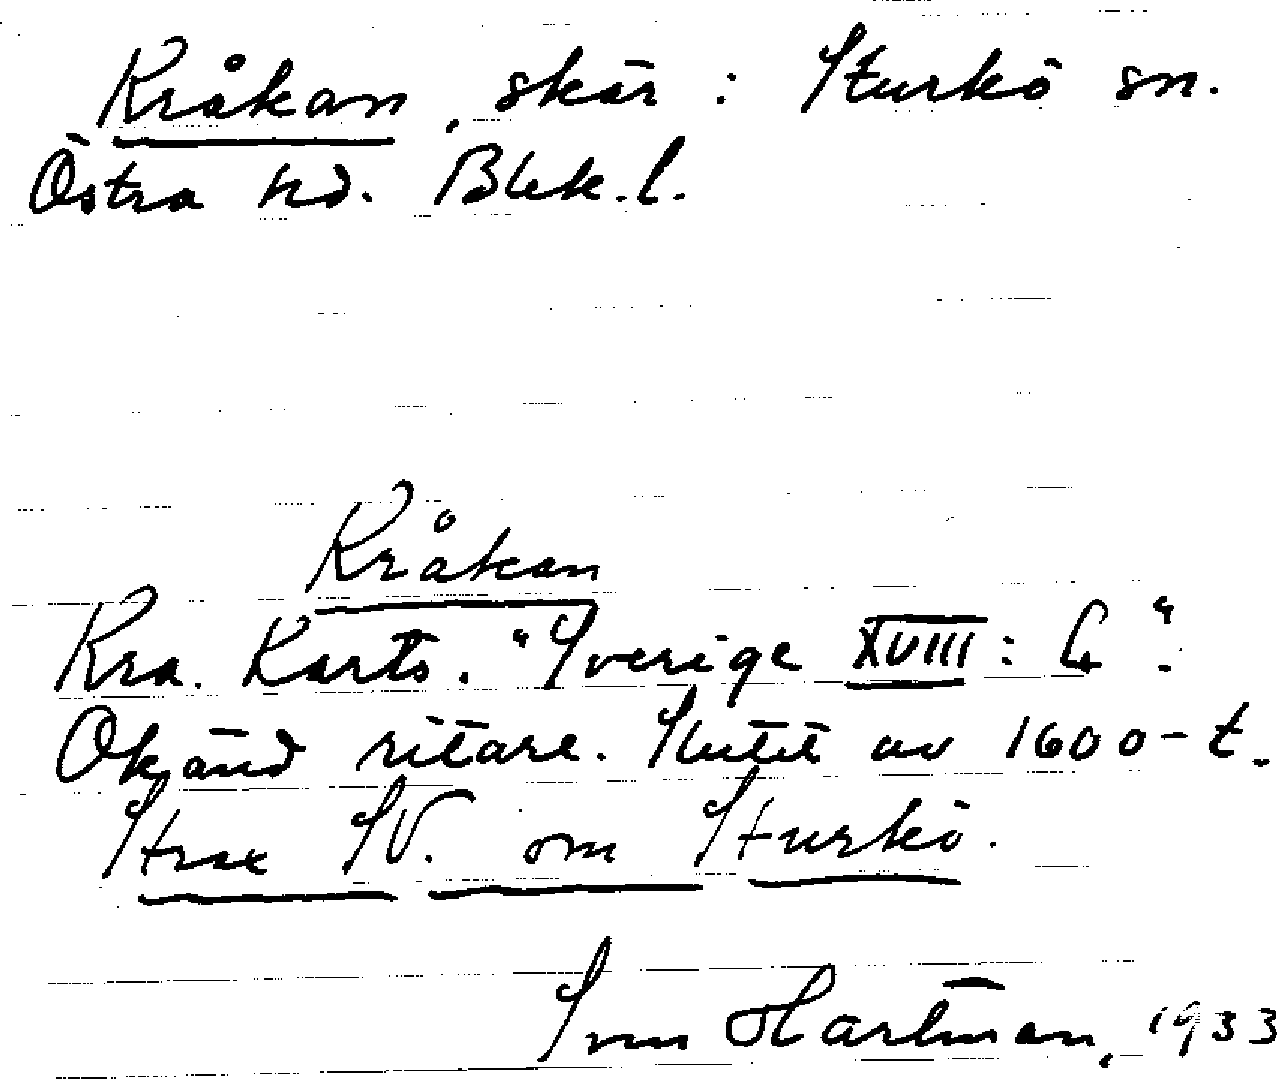 Kråkan, skär: Sturkö sn.
Östra hd. Blek.l.
Kråkan
Kra. Kartv. "Sverige XVIII: G".
Okänd ritare. Slutet av 1600-t.
Strax SV. om Sturkö.
Sven Hartman, 1933